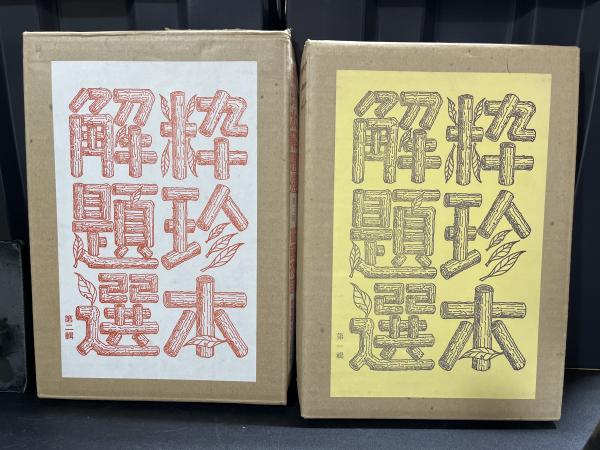 粋珍本
解題選
第一輯
粋珍本
解題選
第二輯